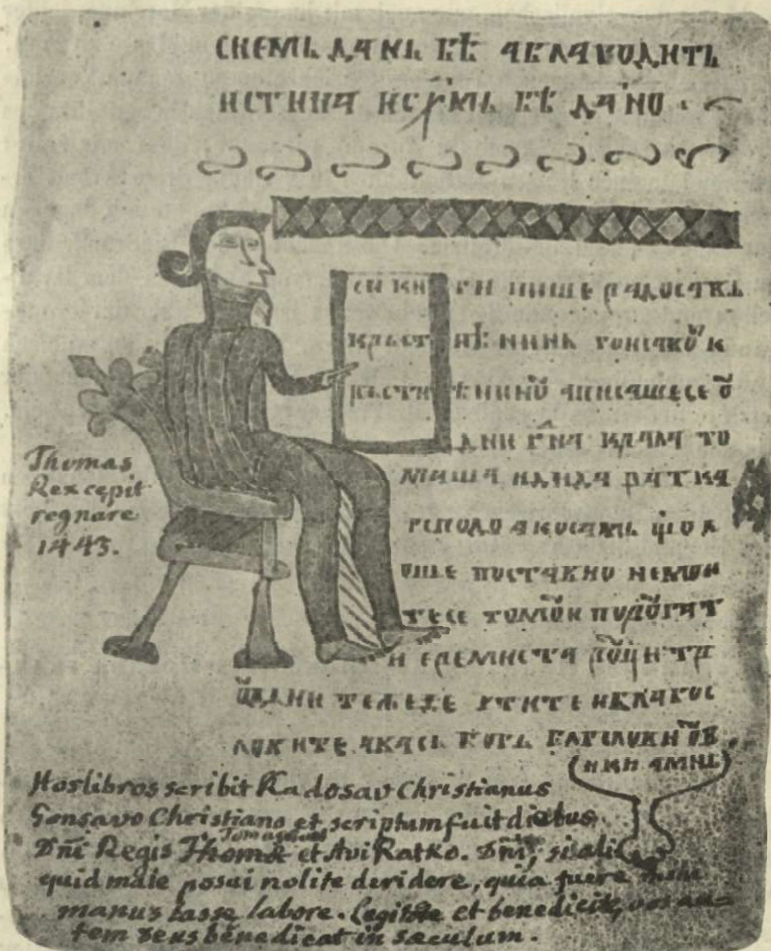 СИЕМЬ ДАНЬ БѢ АБЛАГОДИТЬ
ИСТИНА ИСХРМЬ БѢ ДАНО
СИ КНИГИ ПИШЕ РАДОСАВЬ
КРЬСТИѢНИНЬ ГОИСАВОУ К
РЬСТИѢНИНОУ АПИСАШЕСЕ ОУ
ДНИ ГНА КРАЛА ТО
МАША ИДИДА РАТКА
ГСПОДО АКОСАМЬ ЩО Л
ОШЕ ПОСТАВИО НЕМОИ
ТЕСЕ ТОМОУИ ПОРОУГАТ
И ЕРЕМИСТА РОУЦИ ТР
ОУДНИ ЧТИТЕ ИБЛАГОС
ЛОВИТЕ АВАСЬ БОГЬ БЛАГСЛОВИ ОУВ
ИКИ АМНЬ
Thomas
Rex cępit
regnare
1443.
Hos libros scribit Radosav Christianus
Gonsavo Christiano et scriptum fuit diebus
Dn̄i Regis Thomæ et Avi Ratko. Dn̄i, si ali
quid male posui nolite deridere, quia fuere mihi
manus lassæ labore. Legitote et benedicite, vos au=
tem Deus benedicat in sæculum.